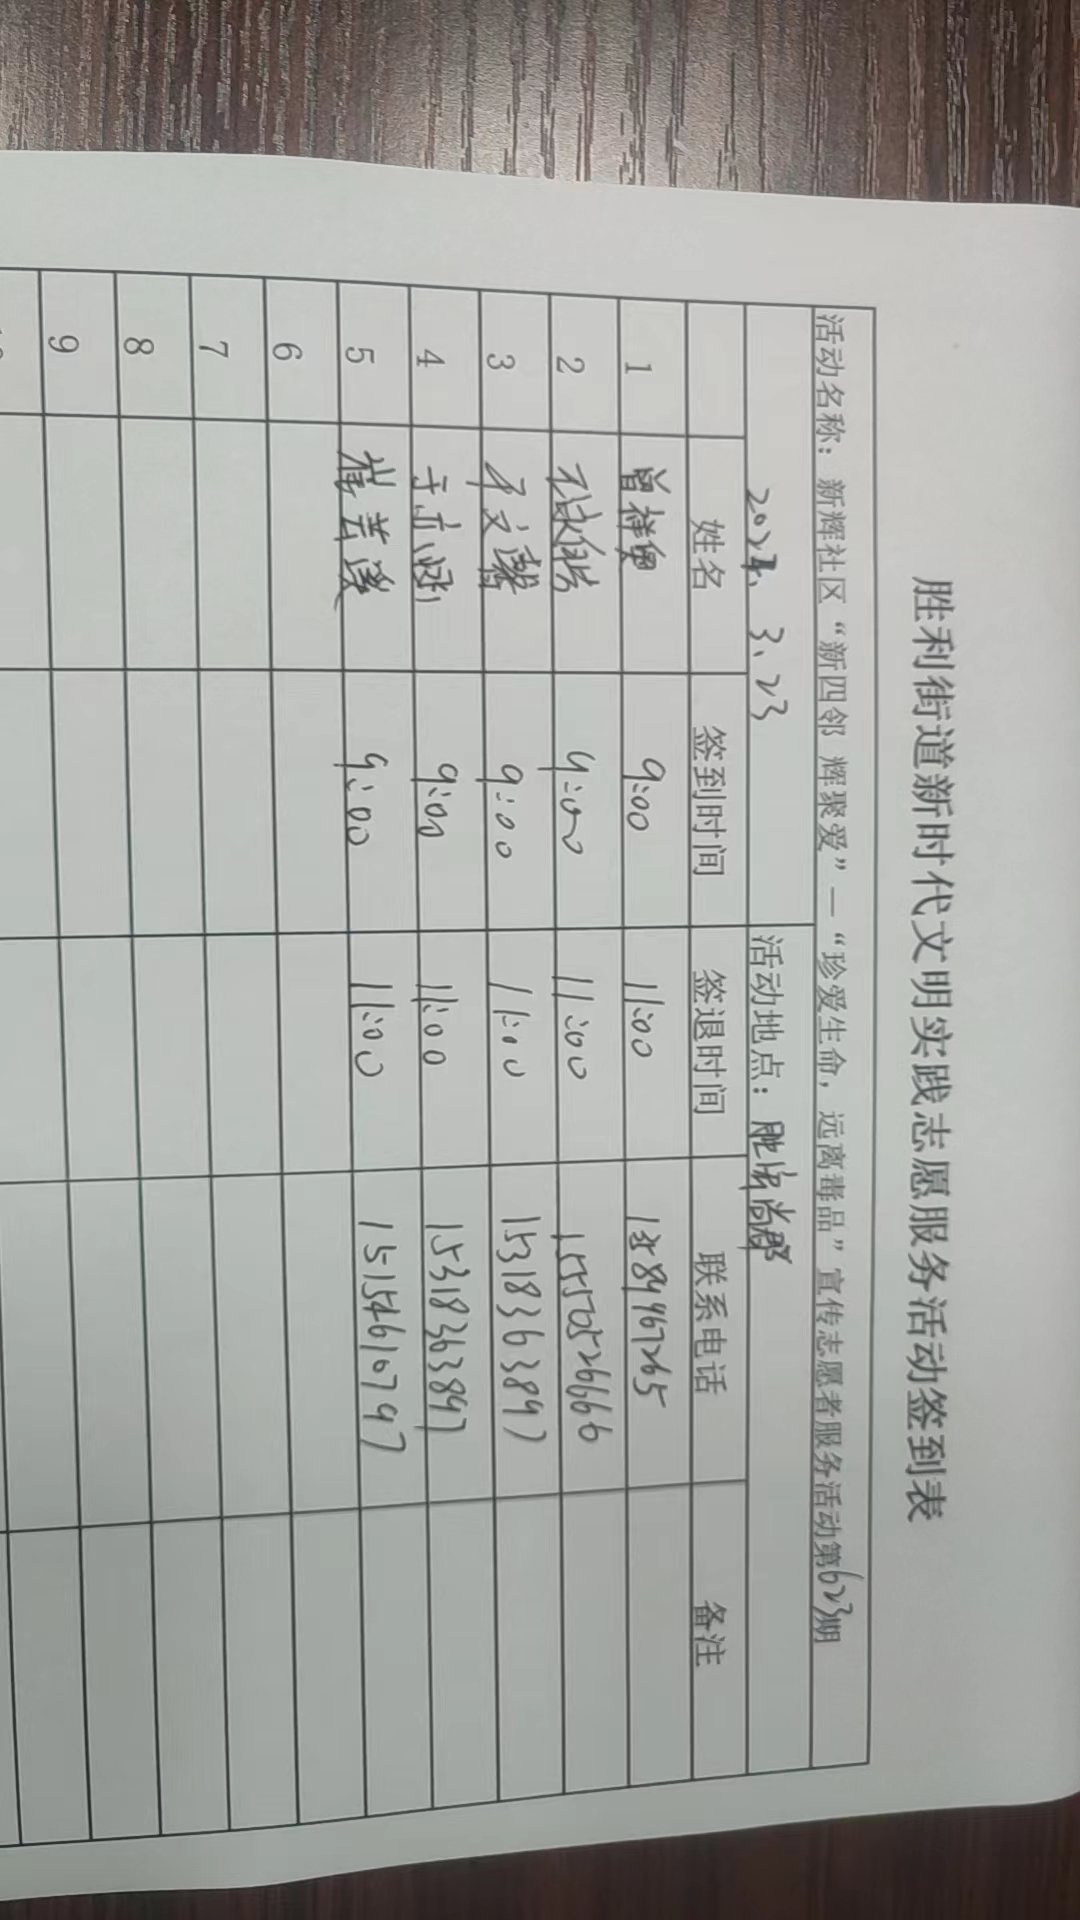 胜利街道新时代文明实践志愿服务活动签到表
活动名称：新辉社区“新四邻 辉聚爱”—“珍爱生命，远离毒品”宣传志愿者服务活动第623期
2024、3、23 活动地点：胜宏尚郡
姓名 签到时间 签退时间 联系电话 备注
1 曾祥奥 9:00 11:00 13589967265
2 9:00 11:00 15550526666
3 文馨 9:00 11:00 15318363897
4 于志 9:00 11:00 15318363897
5 崔芸溪 9:00 11:00 15154610797
6
7
8
9